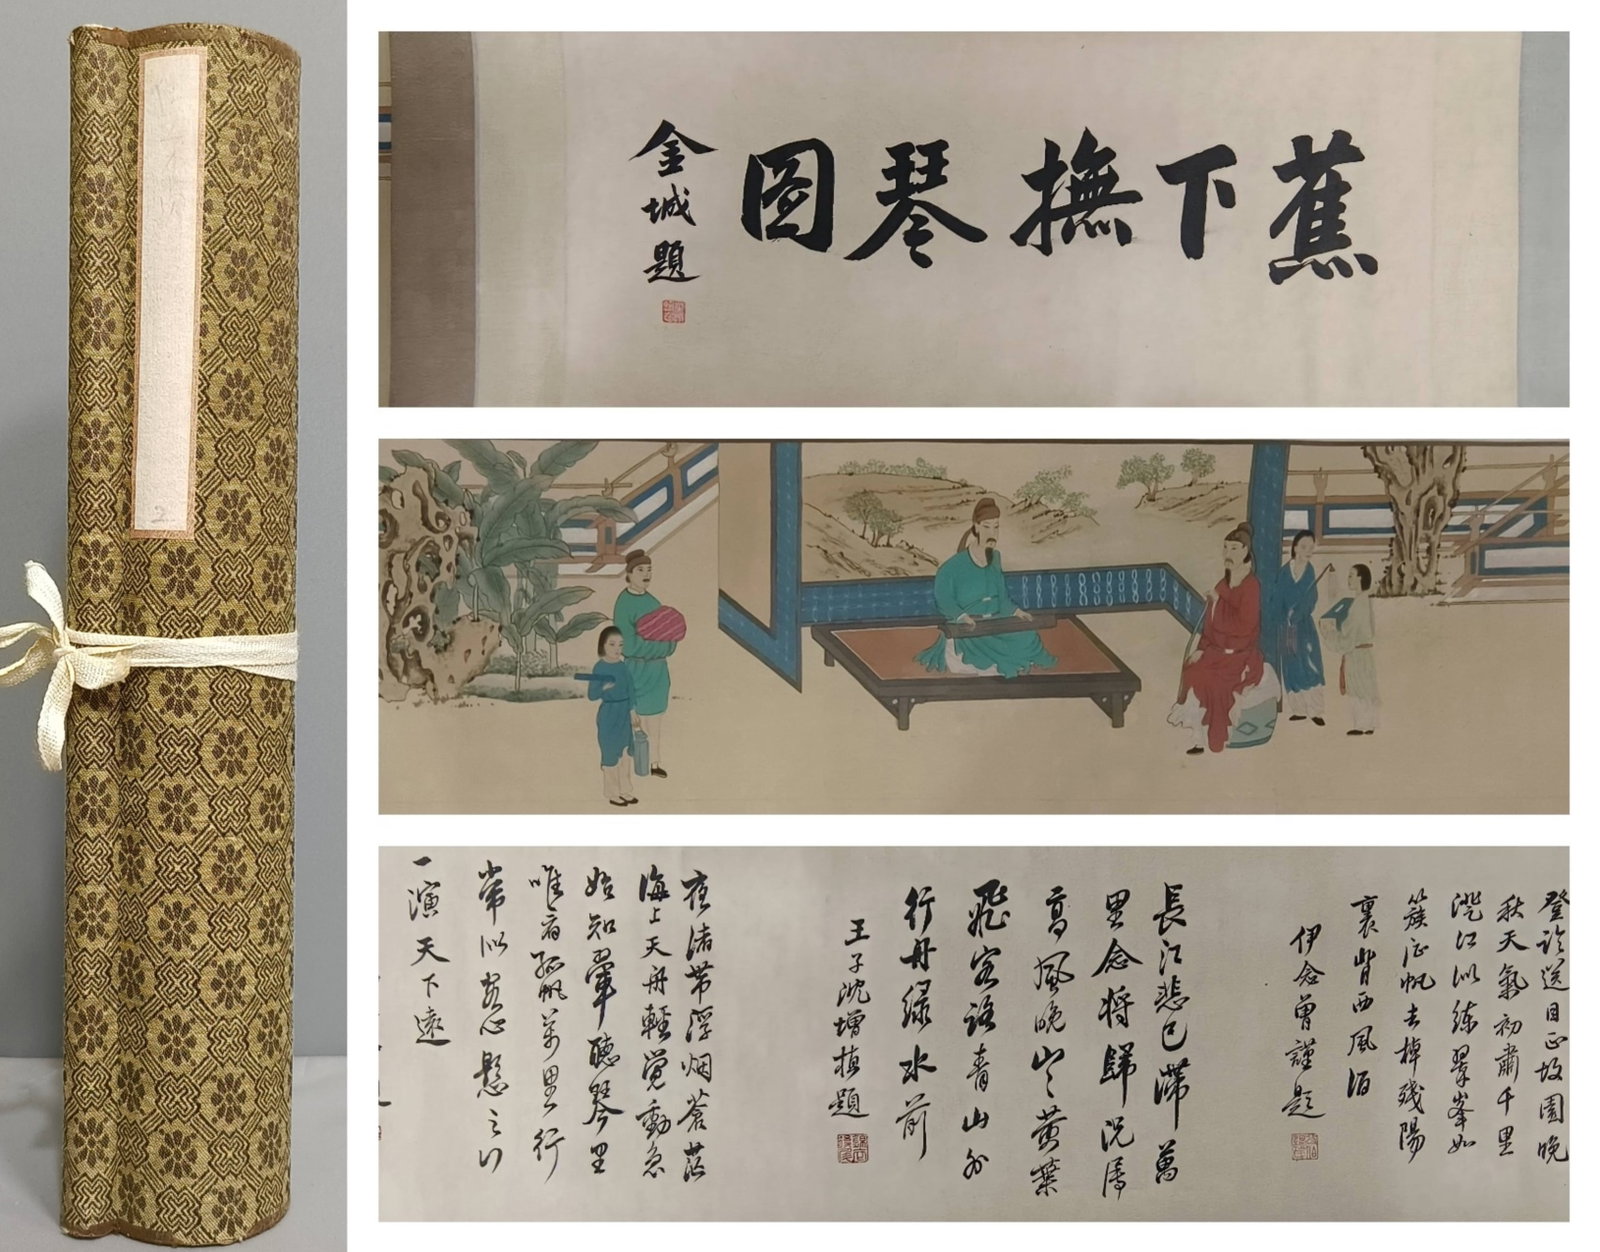 蕉下撫琴圖
金城題
登臨送目正故園晚
秋天氣初肅千里
澄江似練翠峯如
簇征帆去棹殘陽
裏背西風酒
伊念曾謹題
長江悲已滯萬
里念將歸況屬
高風晚山山黃葉
飛客路青山外
行舟綠水前
王子沈增植題
夜渚帶浮烟蒼茫
海上天舟輕覺動急
始知單聽琴里
唯有孤帆萬里行
常似客心懸之
一演天下遠